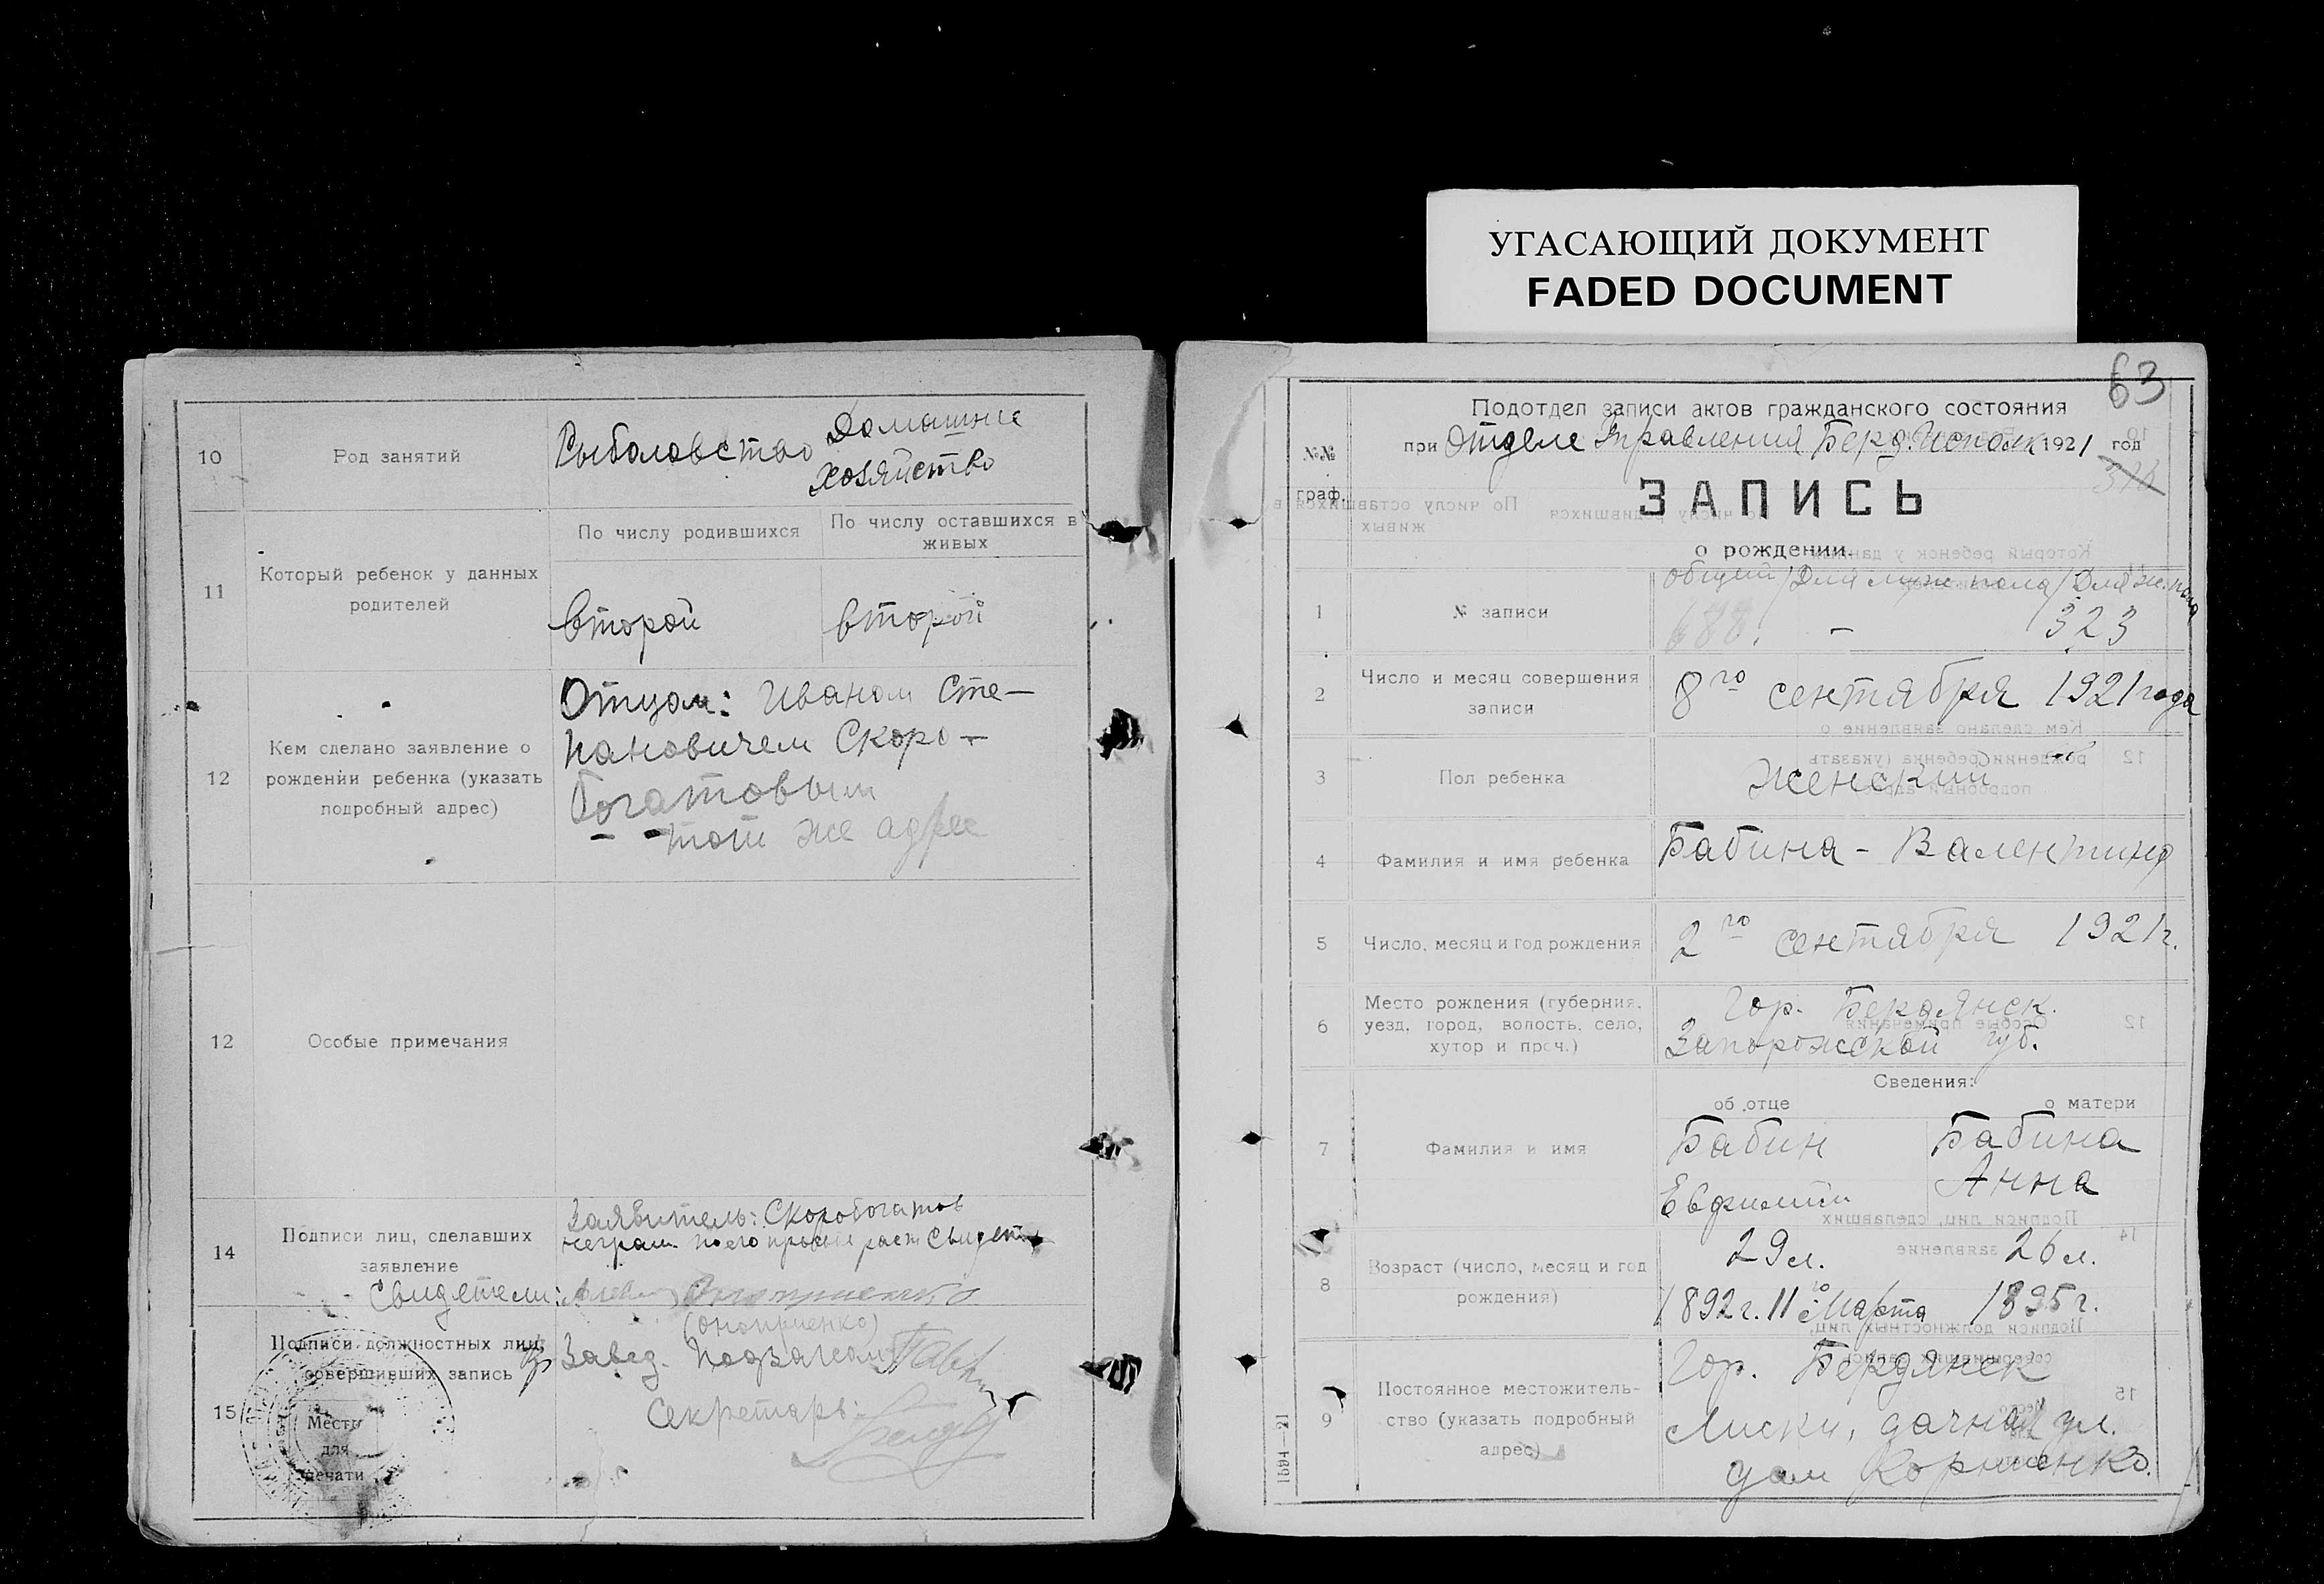 УГАСАЮЩИЙ ДОКУМЕНТ
FADED DOCUMENT
10
Род занятий
Рыболовство
Домашнее
хозяйство
11
Который ребенок у данных
родителей
По числу родившихся
По числу оставшихся в
живых
второй
второй
12
Кем сделано заявление о
рождении ребенка (указать
подробный адрес)
Отцом: Иваном Сте-
пановичем Скоро-
богатовым
тот же адрес
12
Особые примечания
14
Подписи лиц, сделавших
заявление
Заявитель: Скоробогатов
неграм. по его просьбе расп. Свидет.
Свидетели: Оноприенко
(Оноприенко)
15
Подписи должностных лиц,
совершивших запись
Место
для
печати
Завед. Подзагсом
Секретарь:
63
Подотдел записи актов гражданского состояния
при Отделе Управления Берд. Исполк 1921 год
318
№№
граф.
ЗАПИСЬ
о рождении.
1
№ записи
общий / Для муж. пола / Для ж. пола
688. – 323
2
Число и месяц совершения
записи
8го сентября 1921 года
3
Пол ребенка
Женский
4
Фамилия и имя ребенка
Бабина - Валентина
5
Число, месяц и год рождения
2го сентября 1921 г.
6
Место рождения (губерния,
уезд, город, волость, село,
хутор и проч.)
Гор. Бердянск.
Запорожской губ.
Сведения:
об отце
о матери
7
Фамилия и имя
Бабин
Евфимий
Бабина
Анна
8
Возраст (число, месяц и год
рождения)
29 л.
26 л.
1892 г. 11го Марта
1895 г.
9
Постоянное местожитель-
ство (указать подробный
адрес)
Гор. Бердянск
Лиски, дачная ул.
дом Корниенко.
1694—17